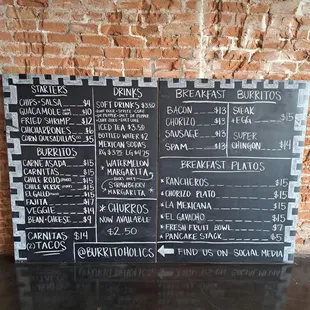 STARTERS
CHIPS + SALSA $4
GUACAMOLE $10
FRIED SHRIMP $12
CHICHARRONES $6
CORN QUESADILLAS $5
BURRITOS
CARNE ASADA $15
CARNITAS $15
CHILE ROJO $15
CHILE VERDE $15
EL GALLO $15
FAJITA $17
VEGGIE $14
BEAN + CHEESE $9
CARNITAS $14
(2) TACOS
DRINKS
SOFT DRINKS $3.50
ICED TEA $3.50
BOTTLED WATER $2
MEXICAN SODAS
RG $3.75 LG $4.25
WATERMELON
MARGARITA
STRAWBERRY
MARGARITA
* CHURROS
NOW AVAILABLE
$2.50
@BURRITOHOLICS
BREAKFAST BURRITOS
BACON $13
CHORIZO $13
SAUSAGE $13
SPAM $13
STEAK
+ EGG $15
SUPER
CHINGON $14
BREAKFAST PLATOS
* RANCHEROS $15
* CHORIZO PLATO $15
* LA MEXICANA $15
* EL GAVACHO $15
* FRESH FRUIT BOWL $7
* PANCAKE STACK $5
FIND US ON SOCIAL MEDIA